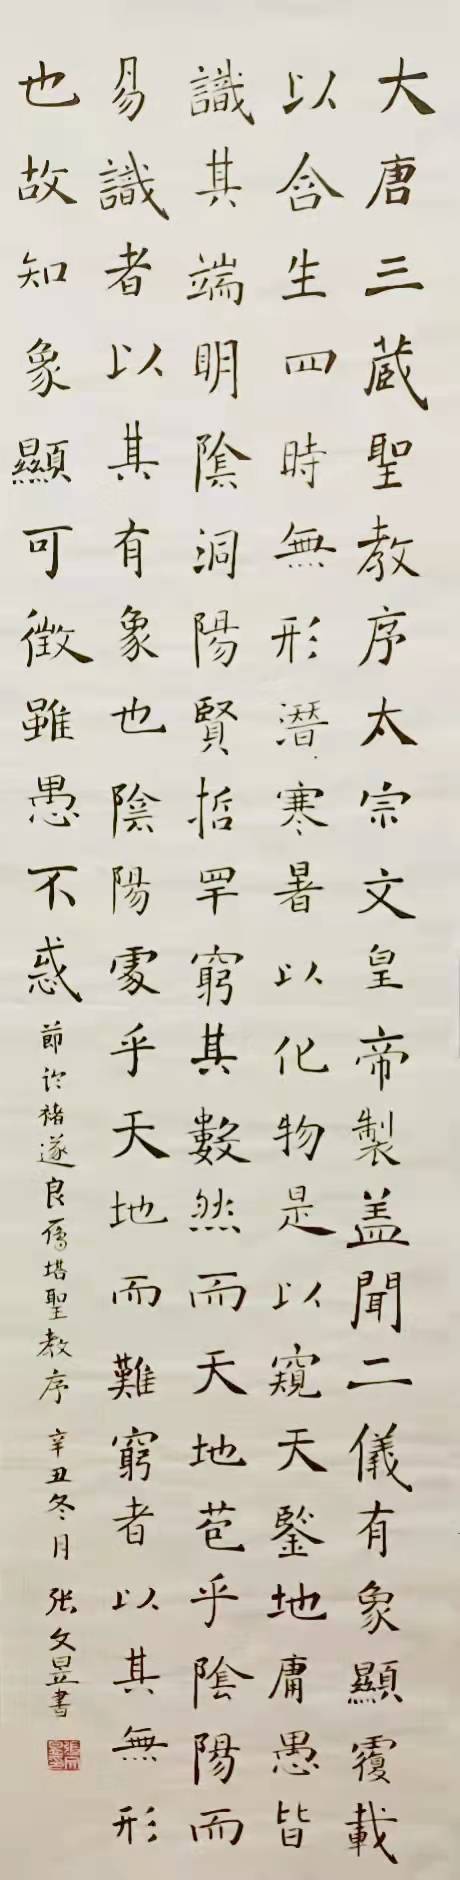 大唐三蔵聖教序太宗文皇帝製盖聞二儀有象顯覆載
以含生四時無形潛寒暑以化物是以窺天鑒地庸愚皆
識其端明陰洞陽賢哲罕窮其數然而天地苞乎陰陽而
易識者以其有象也陰陽處乎天地而難窮者以其無形
也故知象顯可徵雖愚不惑
節臨褚遂良雁塔聖教序 辛丑冬月 张文昱書